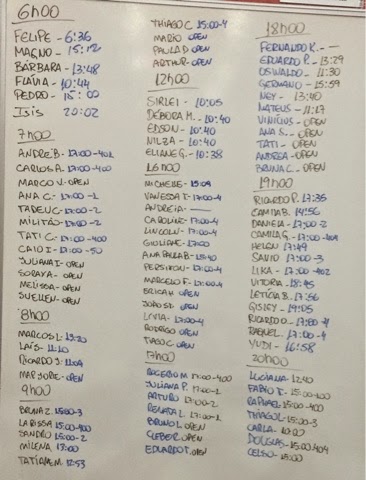 6h00
FELIPE - 6:36
MAGNO - 15:12
BÁRBARA - 13:48
FLÁVIA - 10:44
PEDRO - 15:00
ISIS 20:02
7h00
ANDRÉ B. - 17:00-40L
CARLOS A. 17:00-400
MARCO V. - OPEN
ANA C. - 17:00 -1
TADEU C - 17:00-2
MILITÃO - 17:00-2
TATI C. - 17:00-400
CAIO I - 17:00 - 50
JULIANA I - OPEN
SORAYA - OPEN
MELISSA - OPEN
SUELLEN - OPEN
8h00
MARCOS L - 13:20
LAÍS - 11:10
RICARDO J. 11:04
MARJORIE - OPEN
9h00
BRUNA Z. 15:00-3
LARISSA 15:00-400
SANDRO 15:00-2
MILENA 17:00
TATIANE M. 12:53
THIAGO C. 15:00-4
MARIO OPEN
PAULA D OPEN
ARTHUR - OPEN
12h00
SIRLEI - 10:05
DÉBORA M. - 10:40
EDSON - 10:40
NILZA - 10:40
ELIANE G. - 10:38
16h00
MICHELLE - 15:04
VANESSA T - 17:00-4
ANDRÉIA -
CAROLINE - 17:00-4
LINCOLN - 17:00-4
GIOLIANE - 17:00
ANA PAULA B - 15:40
PERSITON - 17:00-4
MARCELO F. - 17:00-4
BRICAH OPEN
OPEN
LIVIA - 17:00-4
RODRIGO OPEN
TIAGO C - OPEN
17h00
ROGÉRIO M. 17:00-400
JULIANA P. 17:00-1
ARTURO 17:00-2
RENATA L - 17:00-1
BRUNO L OPEN
CLEBER OPEN
EDUARDO T. OPEN
18h00
FERNANDO K. -
EDUARDO P. - 13:29
OSWALDO - 11:30
GERMANO - 15:59
NEY - 13:40
MATEUS - 11:17
VINÍCIUS - OPEN
ANA S. - OPEN
TATI - OPEN
ANDREA - OPEN
BRUNA C. - OPEN
19h00
RICARDO P. 17:35
CAMITA B. 14:56
DANIELA - 17:00-2
CAMILA G. 17:00-404
HELON 17:49
SAVIO 17:00-3
LIKA - 17:00-402
VITORIA - 18:45
LETÍCIA B - 17:56
GISLEY - 19:05
RICARDO O - 17:00-4
RAFAEL - 17:00-4
YUDI - 16:58
20h00
LUCIANA - 12:40
FABIO T - 15:00-400
RAPHAEL 15:00-400
THIAGO L - 15:00-3
CARLA - 10:20
DOUGLAS - 15:00-404
CELSO - 15:00